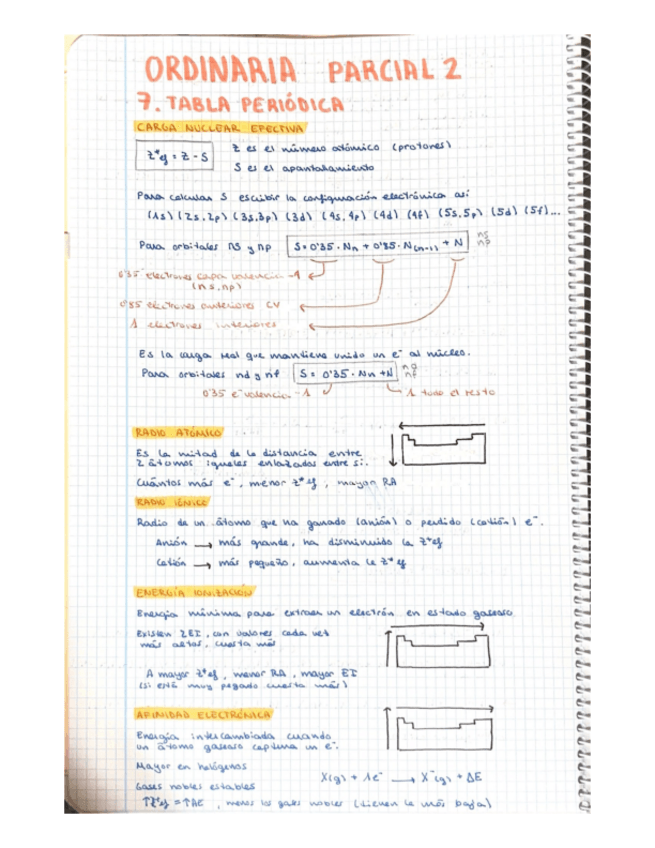 ORDINARIA PARCIAL 2
7. TABLA PERIÓDICA
CARGA NUCLEAR EFECTIVA
Z*ef = Z - S
Z es el número atómico (protones)
S es el apantallamiento
Para calcular S escribir la configuración electrónica así:
(1s) (2s, 2p) (3s, 3p) (3d) (4s, 4p) (4d) (4f) (5s, 5p) (5d) (5f)...
Para orbitales ns y np S = 0'35 · Nn + 0'85 · N(n-1) + N ns
np
0'35 electrones capa valencia -1
(ns, np)
0'85 electrones anteriores CV
1 electrones interiores
Es la carga real que mantiene unido un e⁻ al núcleo.
Para orbitales nd y nf S = 0'35 · Nn + N nd
nf
0'35 e⁻ valencia -1 1 todo el resto
RADIO ATÓMICO
Es la mitad de la distancia entre
2 átomos iguales enlazados entre sí.
Cuántos más e⁻, menor Z*ef, mayor RA
RADIO IÓNICO
Radio de un átomo que ha ganado (anión) o perdido (catión) e⁻.
Anión → más grande, ha disminuido la Z*ef
Catión → más pequeño, aumenta la Z*ef
ENERGÍA IONIZACIÓN
Energía mínima para extraer un electrón en estado gaseoso
Existen 2EI, con valores cada vez
más altos, cuesta más
A mayor Z*ef, menor RA, mayor EI
(si está muy pegado cuesta más)
AFINIDAD ELECTRÓNICA
Energía intercambiada cuando
un átomo gaseoso captura un e⁻.
Mayor en halógenos
X(g) + 1e⁻ → X⁻(g) + ΔE
Gases nobles estables
↑Z*ef = ↑AE, menos los gases nobles (tienen la más baja)